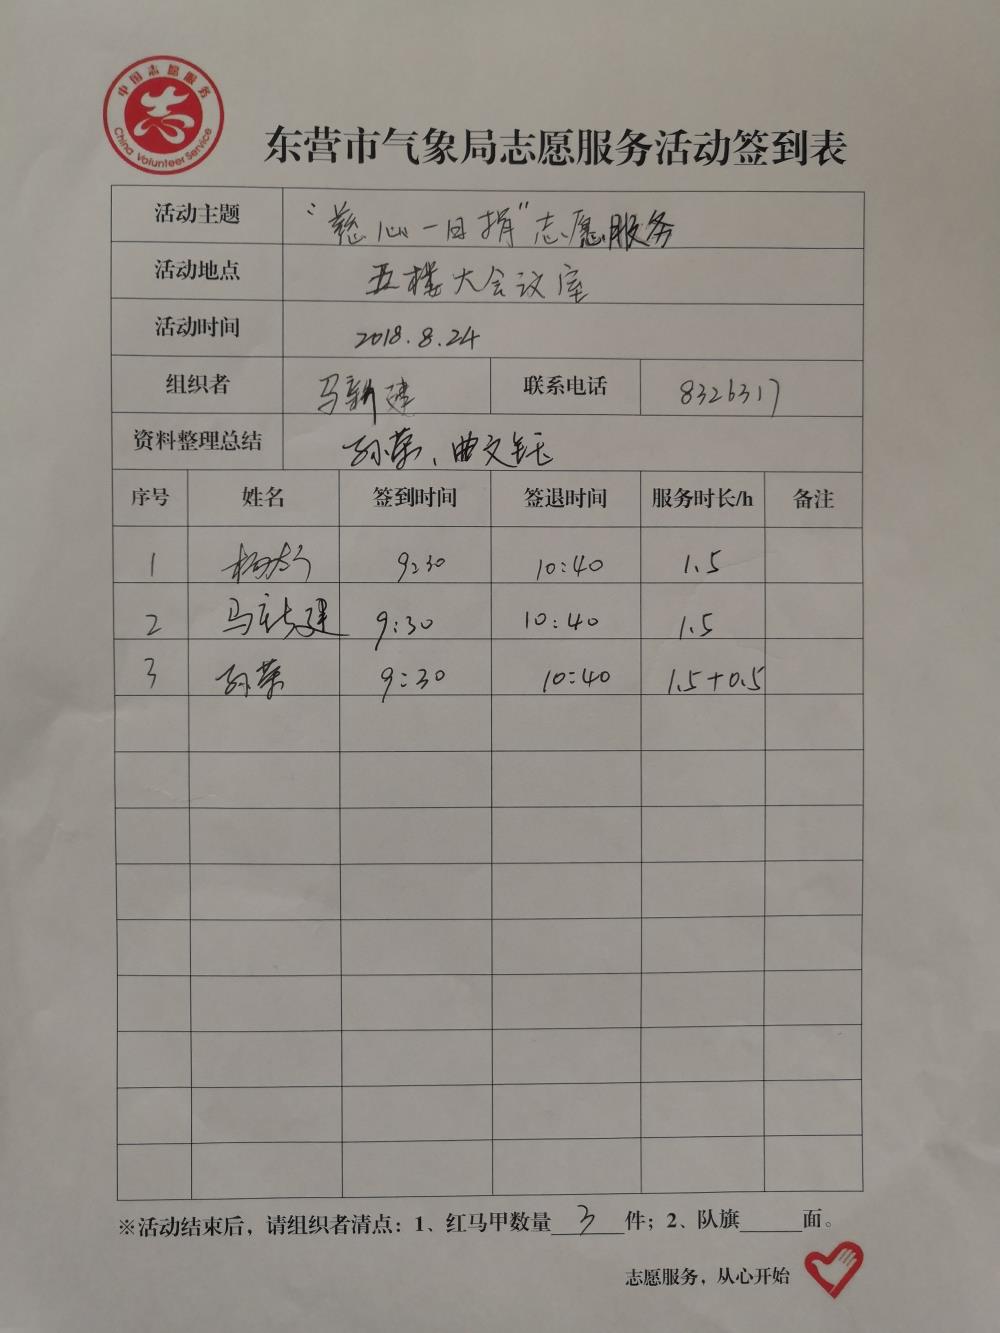 中国志愿服务
志
China Volunteer Service
东营市气象局志愿服务活动签到表
活动主题 “慈心一日捐”志愿服务
活动地点 五楼大会议室
活动时间 2018.8.24
组织者 马新建 联系电话 8326317
资料整理总结 孙荣、曲文钰
序号 姓名 签到时间 签退时间 服务时长/h 备注
1 9:30 10:40 1.5
2 马新建 9:30 10:40 1.5
3 孙荣 9:30 10:40 1.5+0.5
※活动结束后，请组织者清点：1、红马甲数量 3 件；2、队旗______面。
志愿服务，从心开始